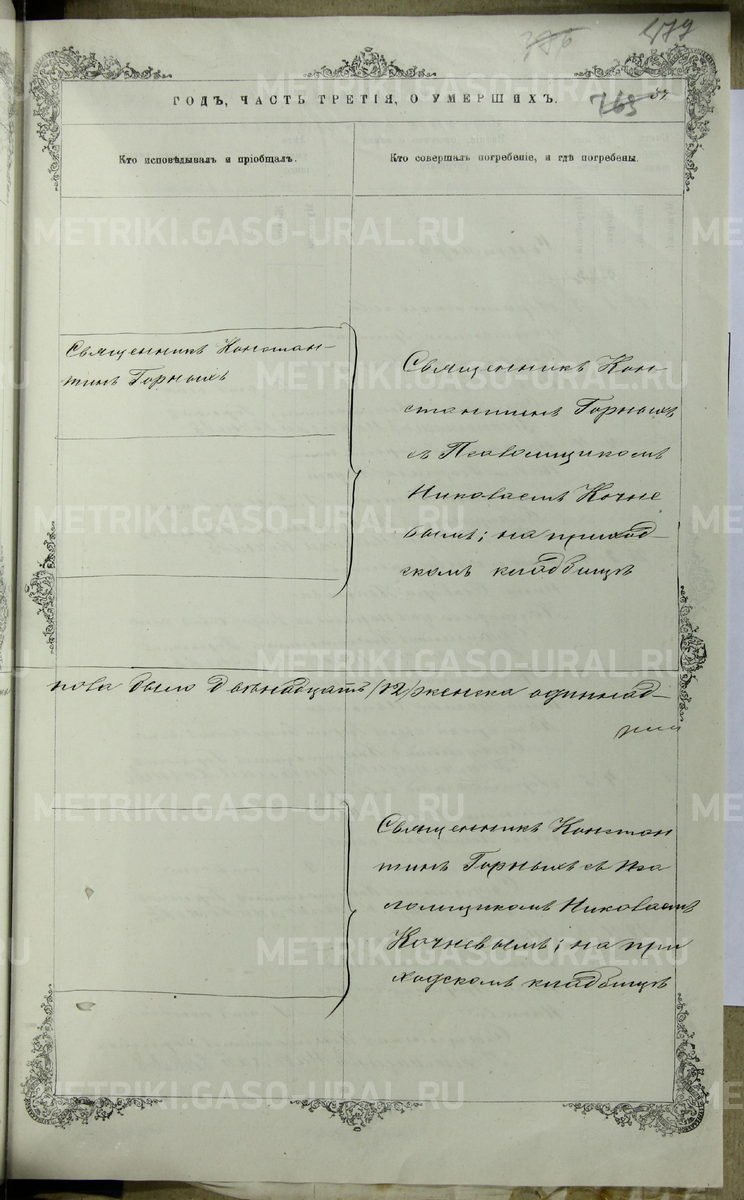 479
765
ГОДЪ, ЧАСТЬ ТРЕТІЯ, О УМЕРШИХЪ.
Кто исповѣдывалъ и пріобщалъ.
Кто совершалъ погребеніе, и гдѣ погребены.
Священникъ Констан-
тинъ Горныхъ
Священникъ Кон
стантинъ Горныхъ
съ Псаломщикомъ
Николаемъ Кочне
вымъ; на приход-
скомъ кладбищѣ
пола было двѣнадцать /12/ женска одиннад-
Священникъ Констан
тинъ Горныхъ съ Пса
ломщикомъ Николаемъ
Кочневымъ; на при
ходскомъ кладбищѣ
METRIKI.GASO-URAL.RU